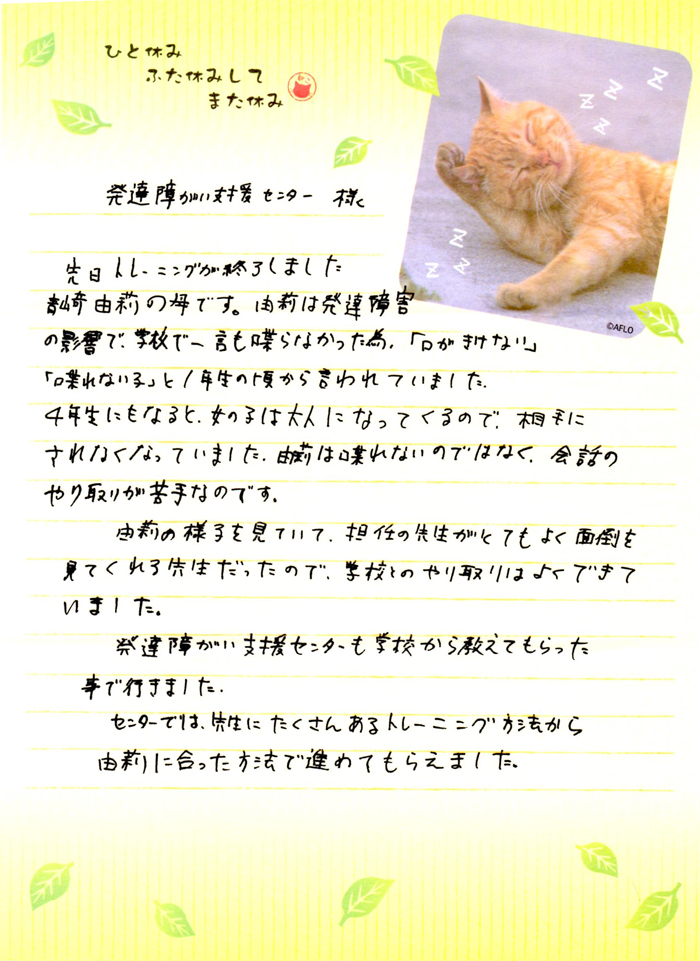 ひと休み
ふた休みして
また休み
ねこ
Z Z Z
Z
発達障がい支援センター 様
Z
Z Z
先日トレーニングが終了しました
由莉の母です。由莉は発達障害
©AFLO
の影響で、学校で一言も喋らなかった為、「口がきけない」
「喋れない子」と1年生の頃から言われていました。
4年生にもなると、女の子は大人になってくるので、相手に
されなくなっていました。由莉は喋れないのではなく、会話の
やり取りが苦手なのです。
由莉の様子を見ていて、担任の先生がとてもよく面倒を
見てくれる先生だったので、学校とのやり取りはよくできて
いました。
発達障がい支援センターも学校から教えてもらった
事で行きました。
センターでは、先生にたくさんあるトレーニング方法から
由莉に合った方法で進めてもらえました。